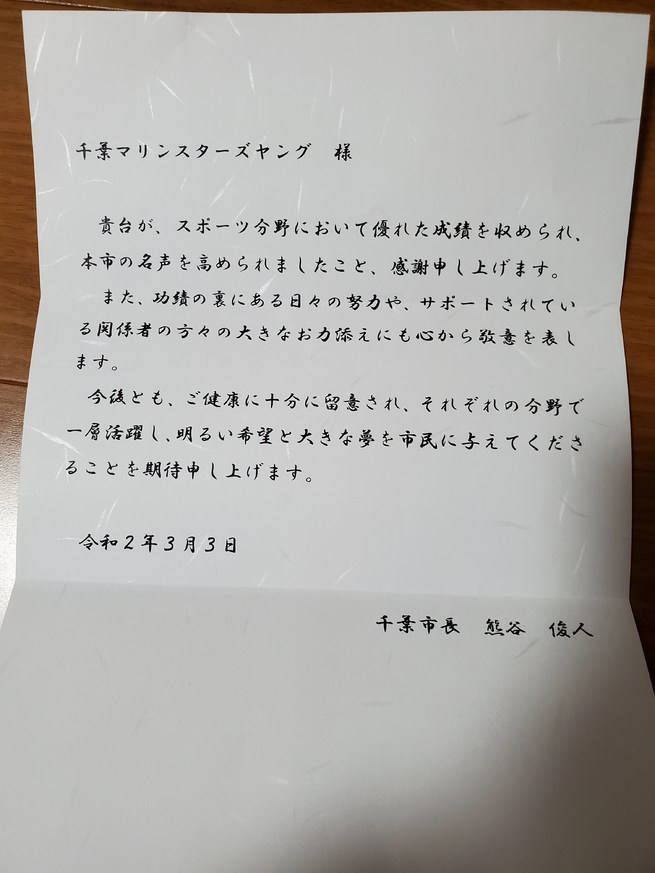 千葉マリンスターズヤング　様
貴台が、スポーツ分野において優れた成績を収められ、
本市の名声を高められましたこと、感謝申し上げます。
また、功績の裏にある日々の努力や、サポートされてい
る関係者の方々の大きなお力添えにも心から敬意を表し
ます。
今後とも、ご健康に十分に留意され、それぞれの分野で
一層活躍し、明るい希望と大きな夢を市民に与えてくださ
ることを期待申し上げます。
令和２年３月３日
千葉市長　熊谷　俊人